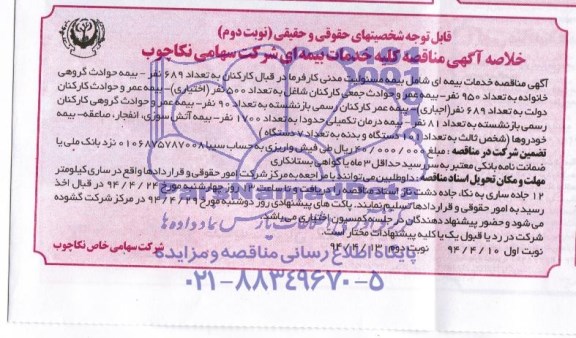 قابل توجه شخصیتهای حقوقی و حقیقی (نوبت دوم)
خلاصه آگهی مناقصه کلیه خدمات بیمه ای شرکت سهامی نکاچوب
آگهی مناقصه خدمات بیمه ای شامل بیمه مسئولیت مدنی کارفرما در قبال کارکنان به تعداد ۶۸۹ نفر - بیمه حوادث گروهی
خانواده به تعداد ۹۵۰ نفر - بیمه عمر و حوادث جمعی کارکنان شاغل به تعداد ۵۰۰ نفر (اختیاری) - بیمه عمر و حوادث کارکنان
دولت به تعداد ۶۸۹ نفر (اجباری) - بیمه عمر کارکنان رسمی بازنشسته به تعداد ۹۰ نفر - بیمه عمر و حوادث گروهی کارکنان
رسمی بازنشسته به تعداد ۸۱ نفر - بیمه درمان تکمیلی حدودا به تعداد ۱۷۰۰ نفر - بیمه آتش سوزی، انفجار، صاعقه - بیمه
خودروها (شخص ثالث به تعداد دستگاه و بدنه به تعداد ۷ دستگاه)
تضمین شرکت در مناقصه: مبلغ ریال طی فیش واریزی به حساب سیبا ۰۱۰۶۸۷۵۷۸۷۰۰۸ نزد بانک ملی یا
ضمانت نامه بانکی معتبر به سررسید حداقل ۳ ماه یا گواهی بستانکاری
مهلت و مکان تحویل اسناد مناقصه: داوطلبین می توانند با مراجعه به مرکز شرکت امور حقوقی و قراردادها واقع در ساری کیلومتر
۱۲ جاده ساری به نکا، جاده دشت ناز اسناد مناقصه را دریافت و تا ساعت ۱۲ روز چهارشنبه مورخ ۹۴/۴/۲۴ در قبال اخذ
رسید به امور حقوقی و قراردادها تسلیم نمایند. پاکت های پیشنهادی روز دوشنبه مورخ ۹۴/۴/۲۹ در مرکز شرکت گشوده
می شود و حضور پیشنهاد دهندگان در جلسه کمیسیون اختیاری می باشد.
شرکت در رد یا قبول یک یا کلیه پیشنهادات مختار است.
نوبت اول ۹۴/۴/۱۰ نوبت دوم: ۹۴/۴/۱۳
شرکت سهامی خاص نکاچوب
پایگاه اطلاع رسانی مناقصه و مزایده
۰۲۱-۸۸۳۴۹۶۷۰-۵